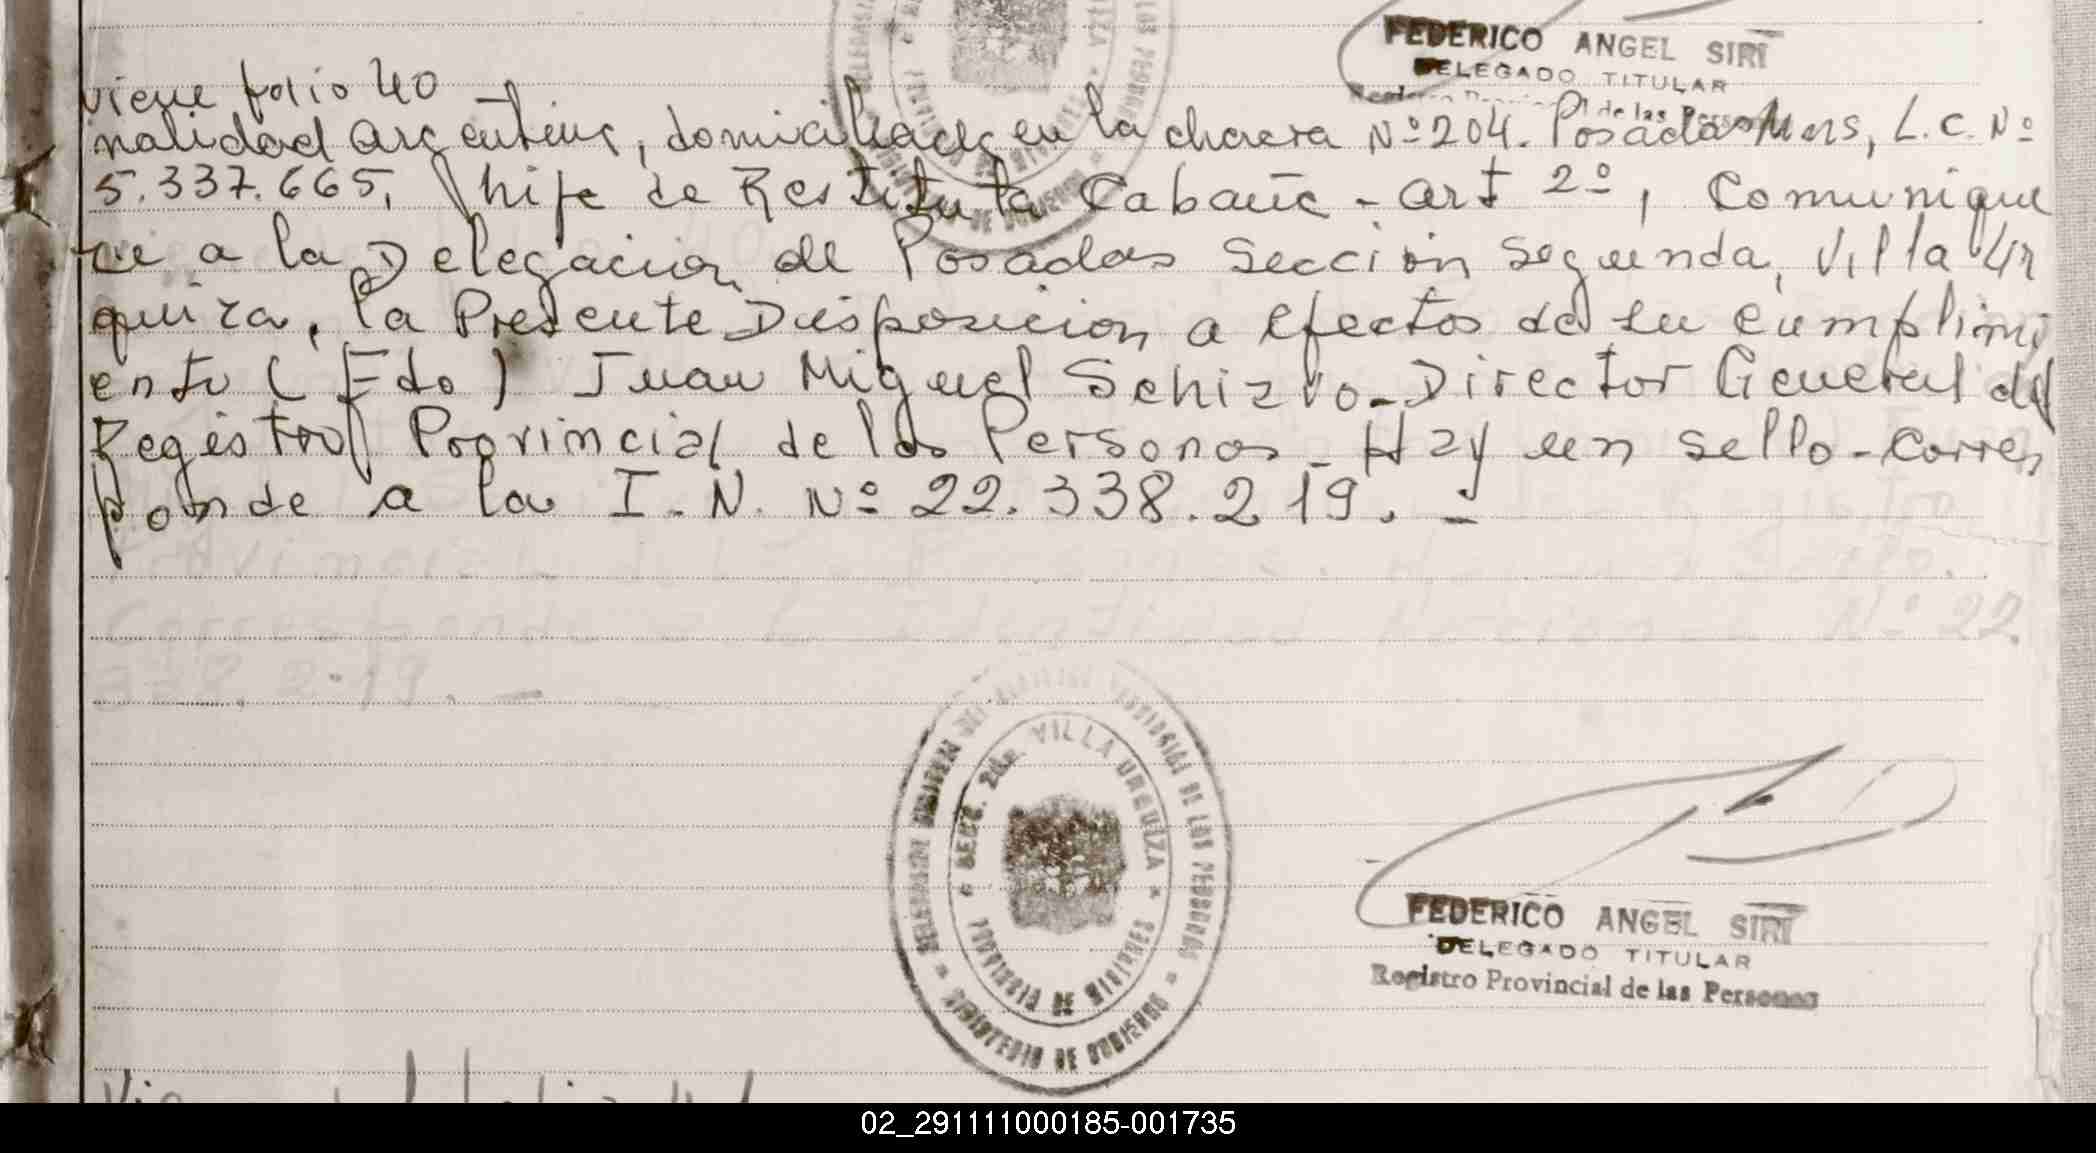 FEDERICO ANGEL SIRI
DELEGADO TITULAR
de las
viene folio 40
nalidad argentina, domiciliada en la chacra Nº 204. Posadas Mnes, L.C. Nº
5.337.665, hija de Restituta Cabañe - art 2º, Comunique
se a la Delegacion de Posadas Seccion Segunda, Villa Ur
quiza, la Presente Disposicion a efectos de su cumplimi
ento (Fdo) Juan Miguel Schizvo - Director General del
Registro Provincial de las Personas - Hay un sello - corres
ponde a la I.N. Nº 22.338.219. -
Provincial de las Personas. Hay un Sello.
Corresponde a la Identidad Nacional Nº 22.
338.219. -
SECC. 2da. VILLA URQUIZA
PROVINCIA DE MISIONES
DE LAS PERSONAS
MINISTERIO DE GOBIERNO
FEDERICO ANGEL SIRI
DELEGADO TITULAR
Registro Provincial de las Personas
02_291111000185-001735